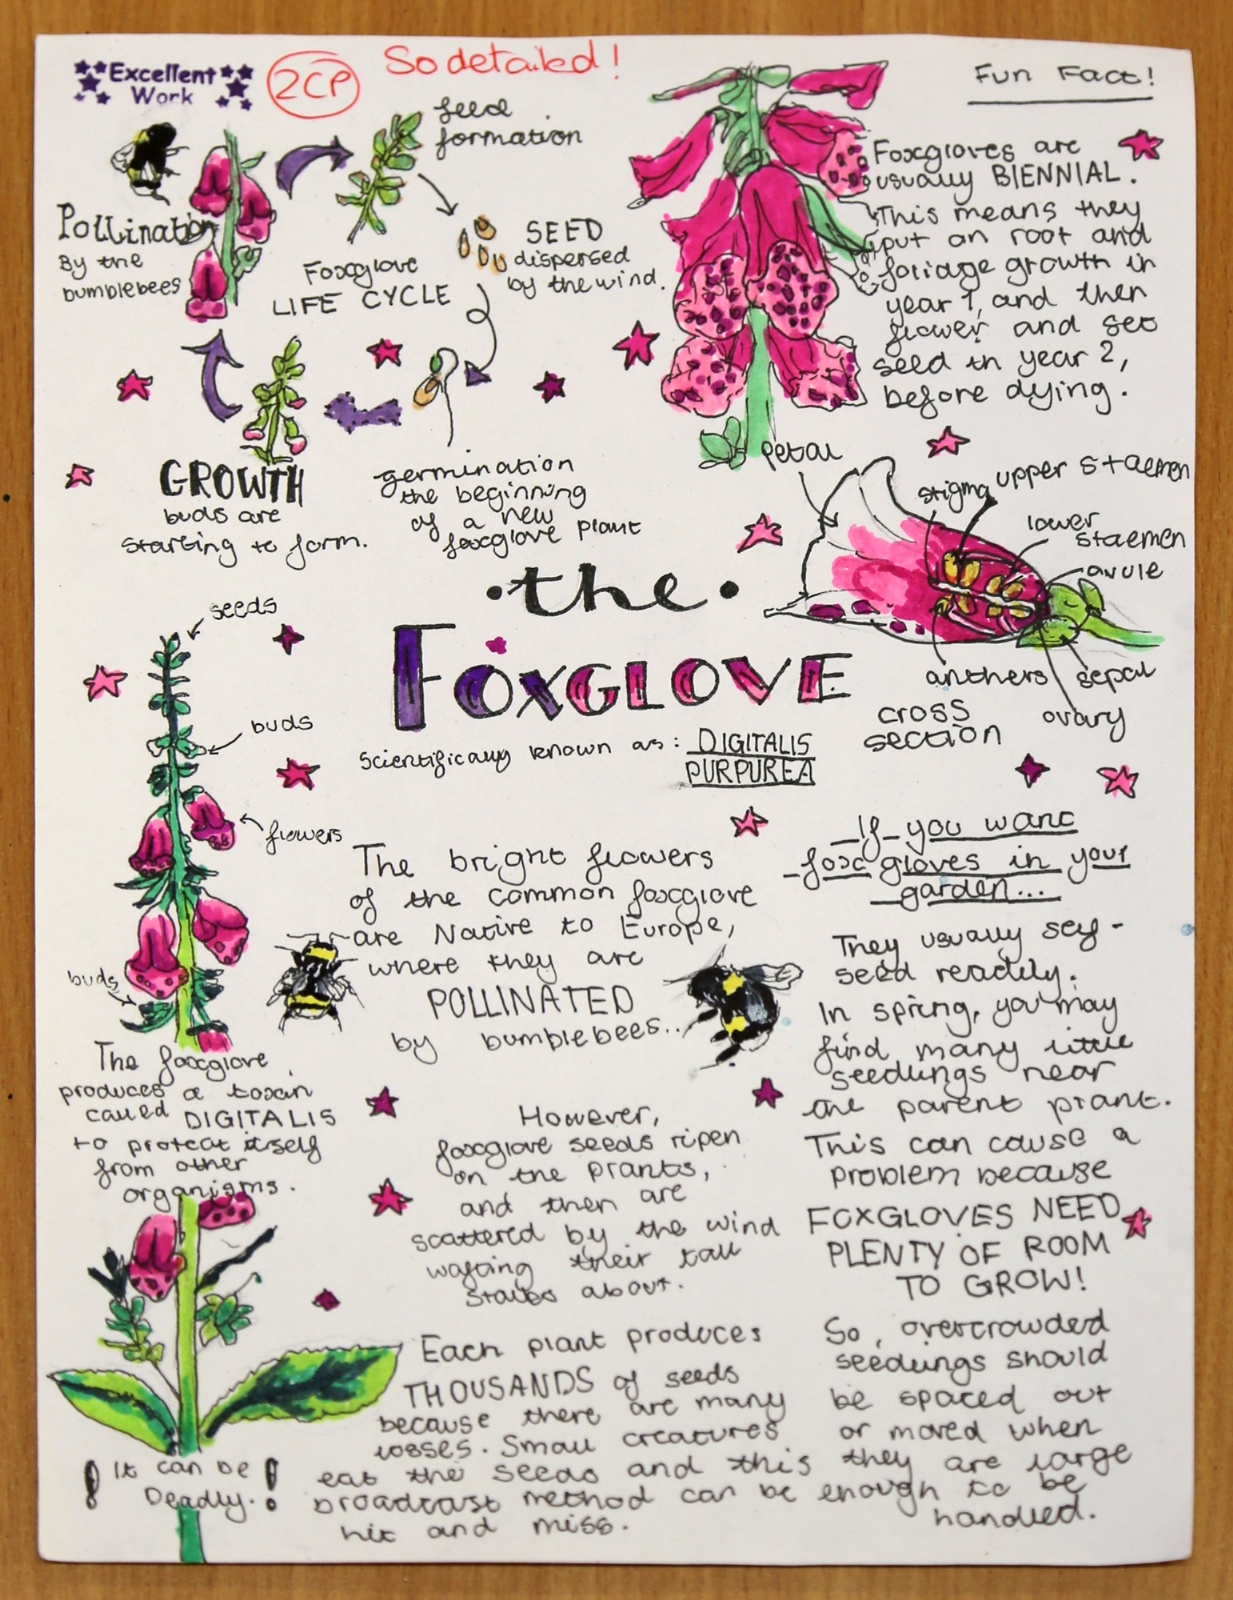 Excellent
Work
2CP
So detailed!
seed
formation
Pollination
By the
bumblebees
SEED
dispersed
by the wind.
Foxglove
LIFE CYCLE
GROWTH
buds are
starting to form.
germination
the beginning
of a new
foxglove plant
Fun Fact!
Foxgloves are
usually BIENNIAL.
This means they
put on root and
foliage growth in
year 1, and then
flower and set
seed in year 2,
before dying.
petal
stigma
upper staemen
lower
staemen
ovule
anthers
sepal
ovary
cross
section
•the•
FOXGLOVE
Scientifically known as: DIGITALIS
PURPUREA
seeds
buds
flowers
buds
The foxglove
produces a toxin
called DIGITALIS
to protect itself
from other
organisms.
! It can be !
Deadly.
The bright flowers
of the common foxglove
are Native to Europe,
where they are
POLLINATED
by bumblebees..
However,
foxglove seeds ripen
on the plants,
and then are
scattered by the wind
wafting their tall
stalks about.
Each plant produces
THOUSANDS of seeds
because there are many
losses. Small creatures
eat the seeds and this
broadcast method can be
hit and miss.
If you want
foxgloves in your
garden...
They usually self-
seed readily.
In spring, you may
find many little
seedlings near
the parent plant.
This can cause a
problem because
FOXGLOVES NEED
PLENTY OF ROOM
TO GROW!
So, overcrowded
seedlings should
be spaced out
or moved when
they are large
enough to be
handled.